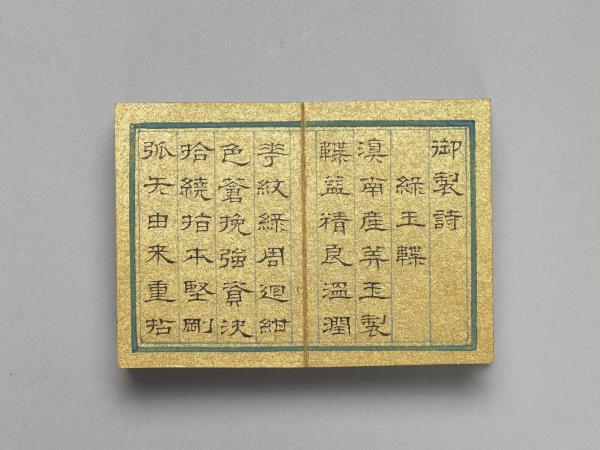 御製詩
綠玉韘
滇南産美玉製
韘益精良溫潤
華紋綠周迴紺
色蒼挽強資決
拾繞指本堅剛
弧矢由来重拈